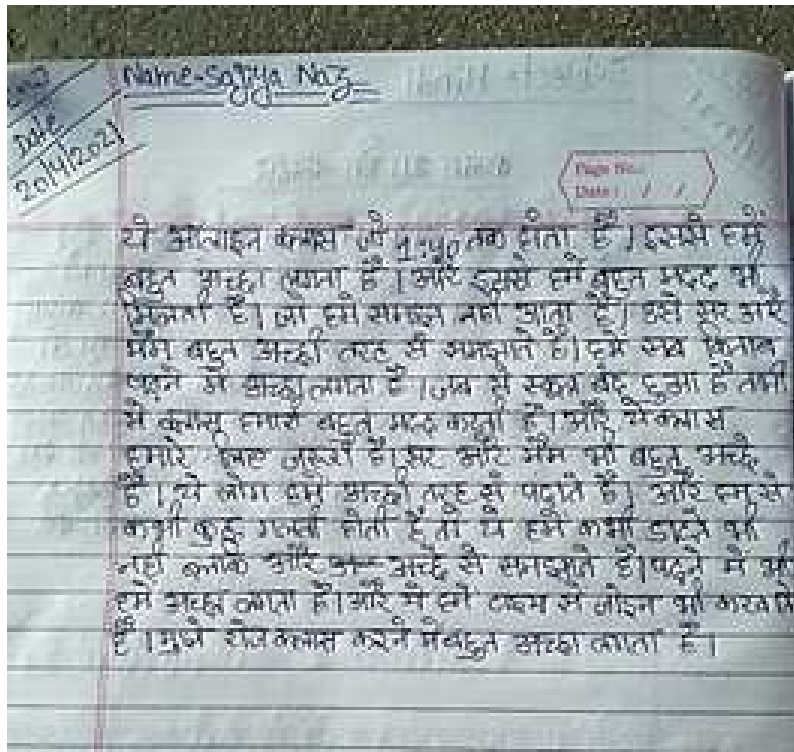 Name-Sajiya Naz
Date
20/4/2021
Page No.:
Date: / /
ये ऑनलाइन क्लास जो 1:40 तक होता है। इससे हमें
बहुत अच्छा लगता है। और इससे हमें बहुत मदद भी
मिलती है। जो हमे समझ नही आता है। उसे सर और
मैम बहुत अच्छी तरह से समझाते है। हमे सब किताब
पढ़ने मे अच्छा लगता है। जब से स्कूल बंद हुआ है तभी
से क्लास हमारी बहुत मदद करती है। और ये क्लास
हमारे लिए जरूरी है। सर और मैम भी बहुत अच्छे
है। ये लोग हमे अच्छी तरह से पढ़ाते है। और हम से
कभी कुछ गलती होती है तो ये हमे कभी डाटते भी
नही बल्कि और अच्छे से समझाते है। पढ़ने में भी
हमे अच्छा लगता है। और ये हमें टाइम से जोइन भी करवाते
है। मुझे रोज क्लास करने मे बहुत अच्छा लगता है।